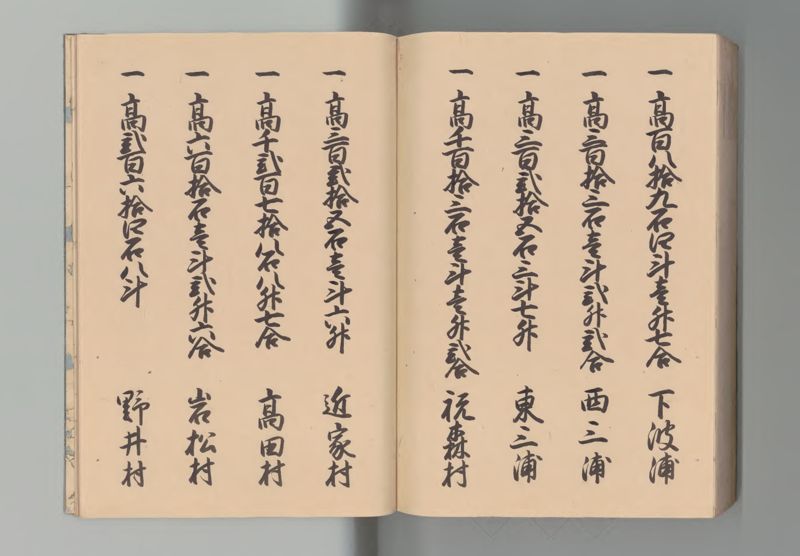 一 高百八拾九石四斗壱升七合 下波浦
一 高三百拾三石壱斗弐升弐合 西三浦
一 高三百弐拾五石三斗七升 東三浦
一 高千百拾三石壱斗壱升弐合 祝森村
一 高三百弐拾五石壱斗六升 近家村
一 高千弐百七拾八石八升七合 高田村
一 高六百拾石壱斗弐升六合 岩松村
一 高弐百六拾四石八斗 野井村